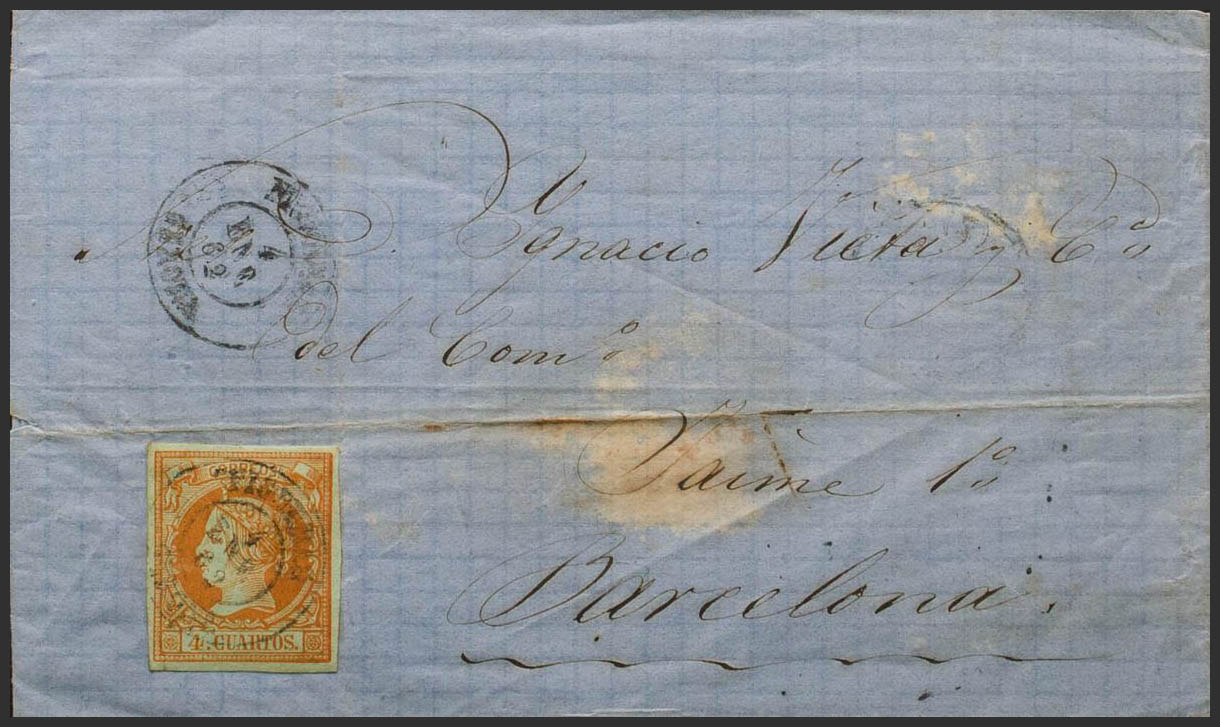 D. Ygnacio Vieta y Cª
del Comº
Jaime 1º
Barcelona.
4
62
CORREOS
4 CUARTOS.